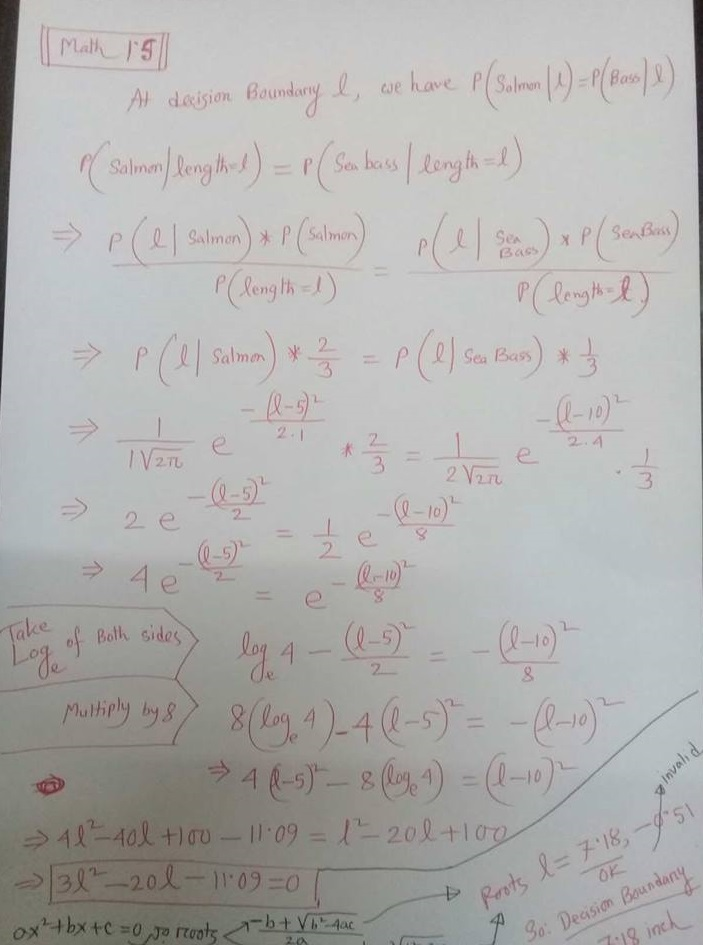 Math 1.5
At decision Boundary l, we have P(Salmon|l)=P(Bass|l)
P(Salmon/length=l) = P(Sea bass | length=l)
⇒ P(l|Salmon) * P(Salmon) / P(length=l) = P(l|Sea Bass) * P(SeaBass) / P(length=l)
⇒ P(l|Salmon) * 2/3 = P(l|Sea Bass) * 1/3
⇒ 1/(1√2π) e^(-(l-5)²/2.1) * 2/3 = 1/(2√2π) e^(-(l-10)²/2.4) . 1/3
⇒ 2 e^(-(l-5)²/2) = 1/2 e^(-(l-10)²/8)
⇒ 4 e^(-(l-5)²/2) = e^(-(l-10)²/8)
Take Log_e of Both sides
log_e 4 - (l-5)²/2 = -(l-10)²/8
Multiply by 8
8(log_e 4) - 4(l-5)² = -(l-10)²
⇒ 4(l-5)² - 8(log_e 4) = (l-10)²
⇒ 4l² - 40l + 100 - 11.09 = l² - 20l + 100
⇒ 3l² - 20l - 11.09 = 0
ax²+bx+c=0, so roots (-b+√b²-4ac)/2a
Roots l = 7.18, -0.51
OK
invalid
So: Decision Boundary
7.18 inch